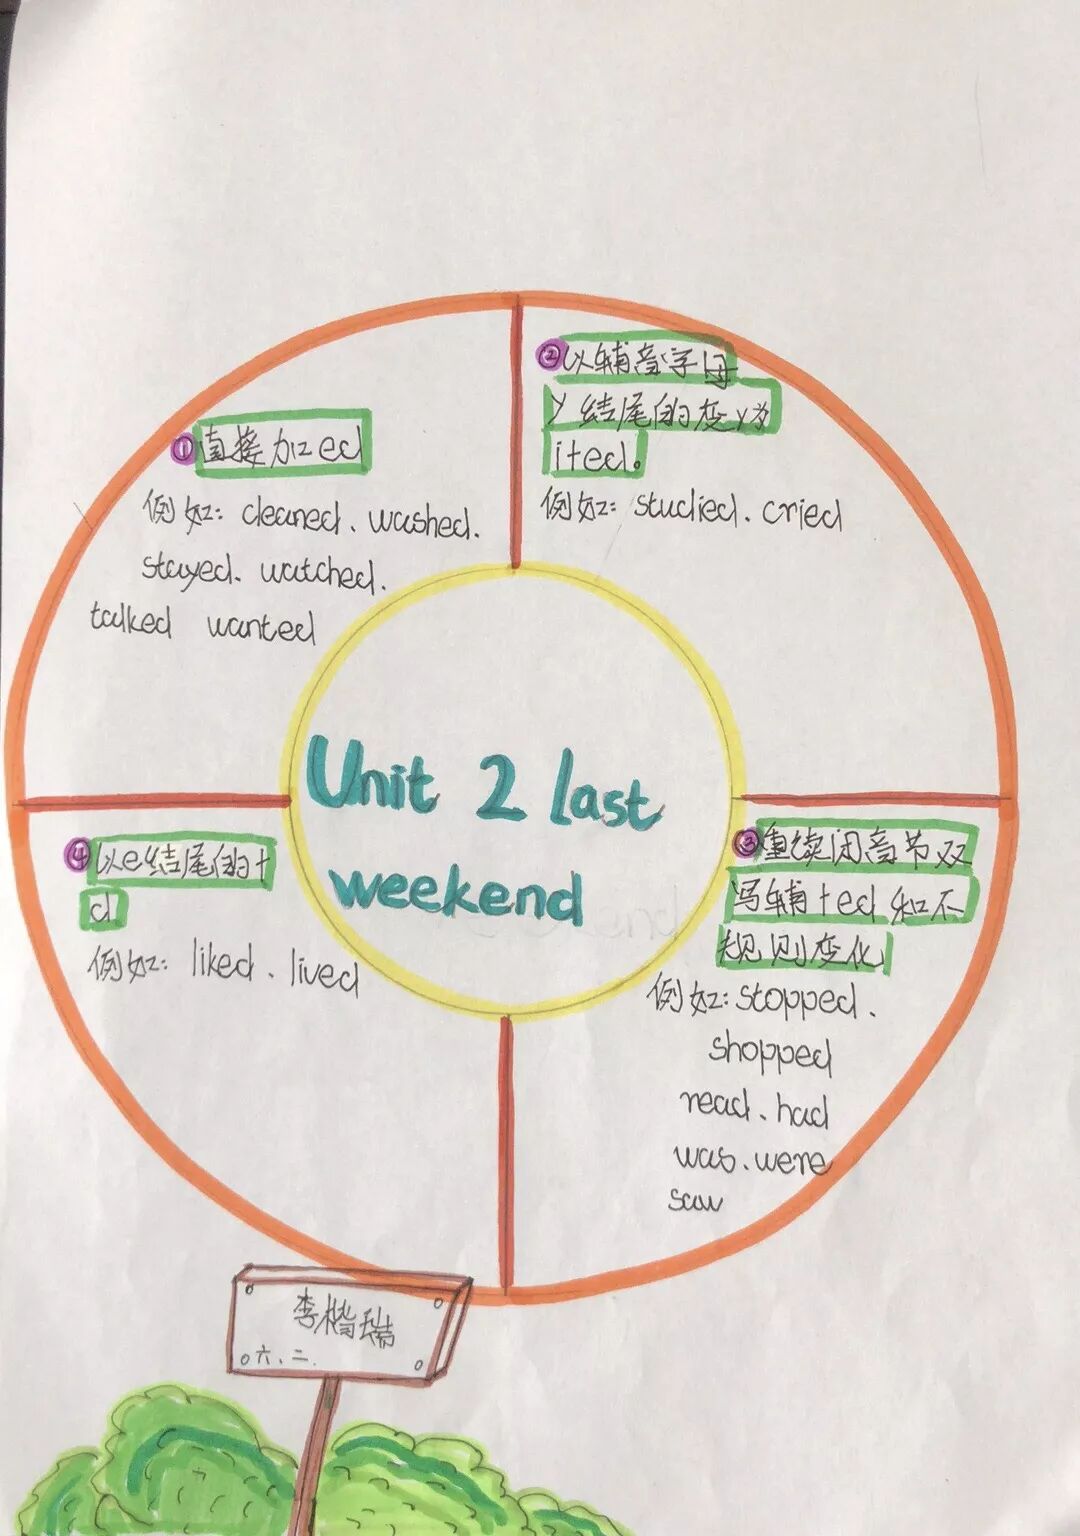 ①直接加ed
例如: cleaned. washed.
stayed. watched.
talked wanted
②以辅音字母
y结尾的变y为
i+ed。
例如: studied. cried
Unit 2 last
weekend
③重续闭音节双
写辅+ed和不
规则变化
例如: stopped.
shopped
read. had
was. were
saw
④以e结尾的+
d
例如: liked. lived
李楷瑞
六.二.